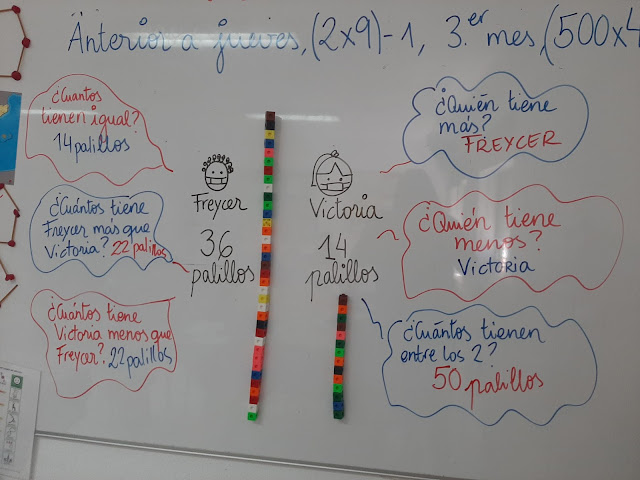 Anterior a jueves, (2x9)-1, 3.er mes, (500x4
¿Cuantos
tienen igual?
14 palillos
¿Cuántos tiene
Freycer más que
Victoria? 22 palillos
¿Cuántos tiene
Victoria menos que
Freycer? 22 palillos
Freycer
36
palillos
Victoria
14
palillos
¿Quién tiene
más?
FREYCER
¿Quién tiene
menos?
Victoria
¿Cuántos tienen
entre los 2?
50 palillos